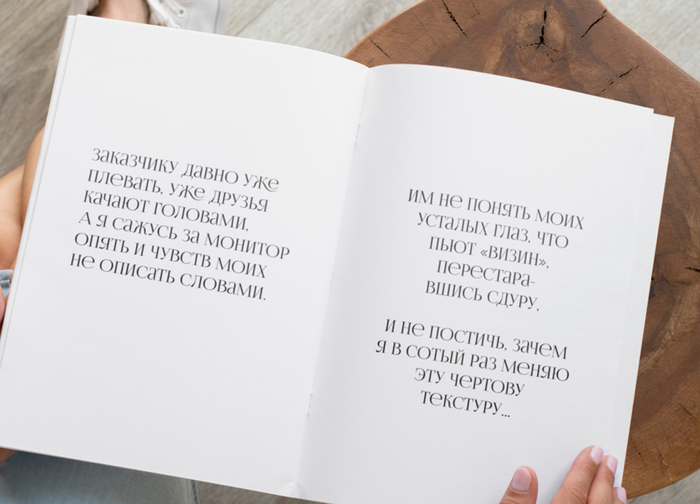 ЗАКАЗЧИКУ ДАВНО УЖЕ
ПЛЕВАТЬ, УЖЕ ДРУЗЬЯ
КАЧАЮТ ГОЛОВАМИ,
А Я САЖУСЬ ЗА МОНИТОР
ОПЯТЬ И ЧУВСТВ МОИХ
НЕ ОПИСАТЬ СЛОВАМИ.
ИМ НЕ ПОНЯТЬ МОИХ
УСТАЛЫХ ГЛАЗ, ЧТО
ПЬЮТ «ВИЗИН»,
ПЕРЕСТАРА-
ВШИСЬ СДУРУ,
И НЕ ПОСТИЧЬ, ЗАЧЕМ
Я В СОТЫЙ РАЗ МЕНЯЮ
ЭТУ ЧЕРТОВУ
ТЕКСТУРУ...